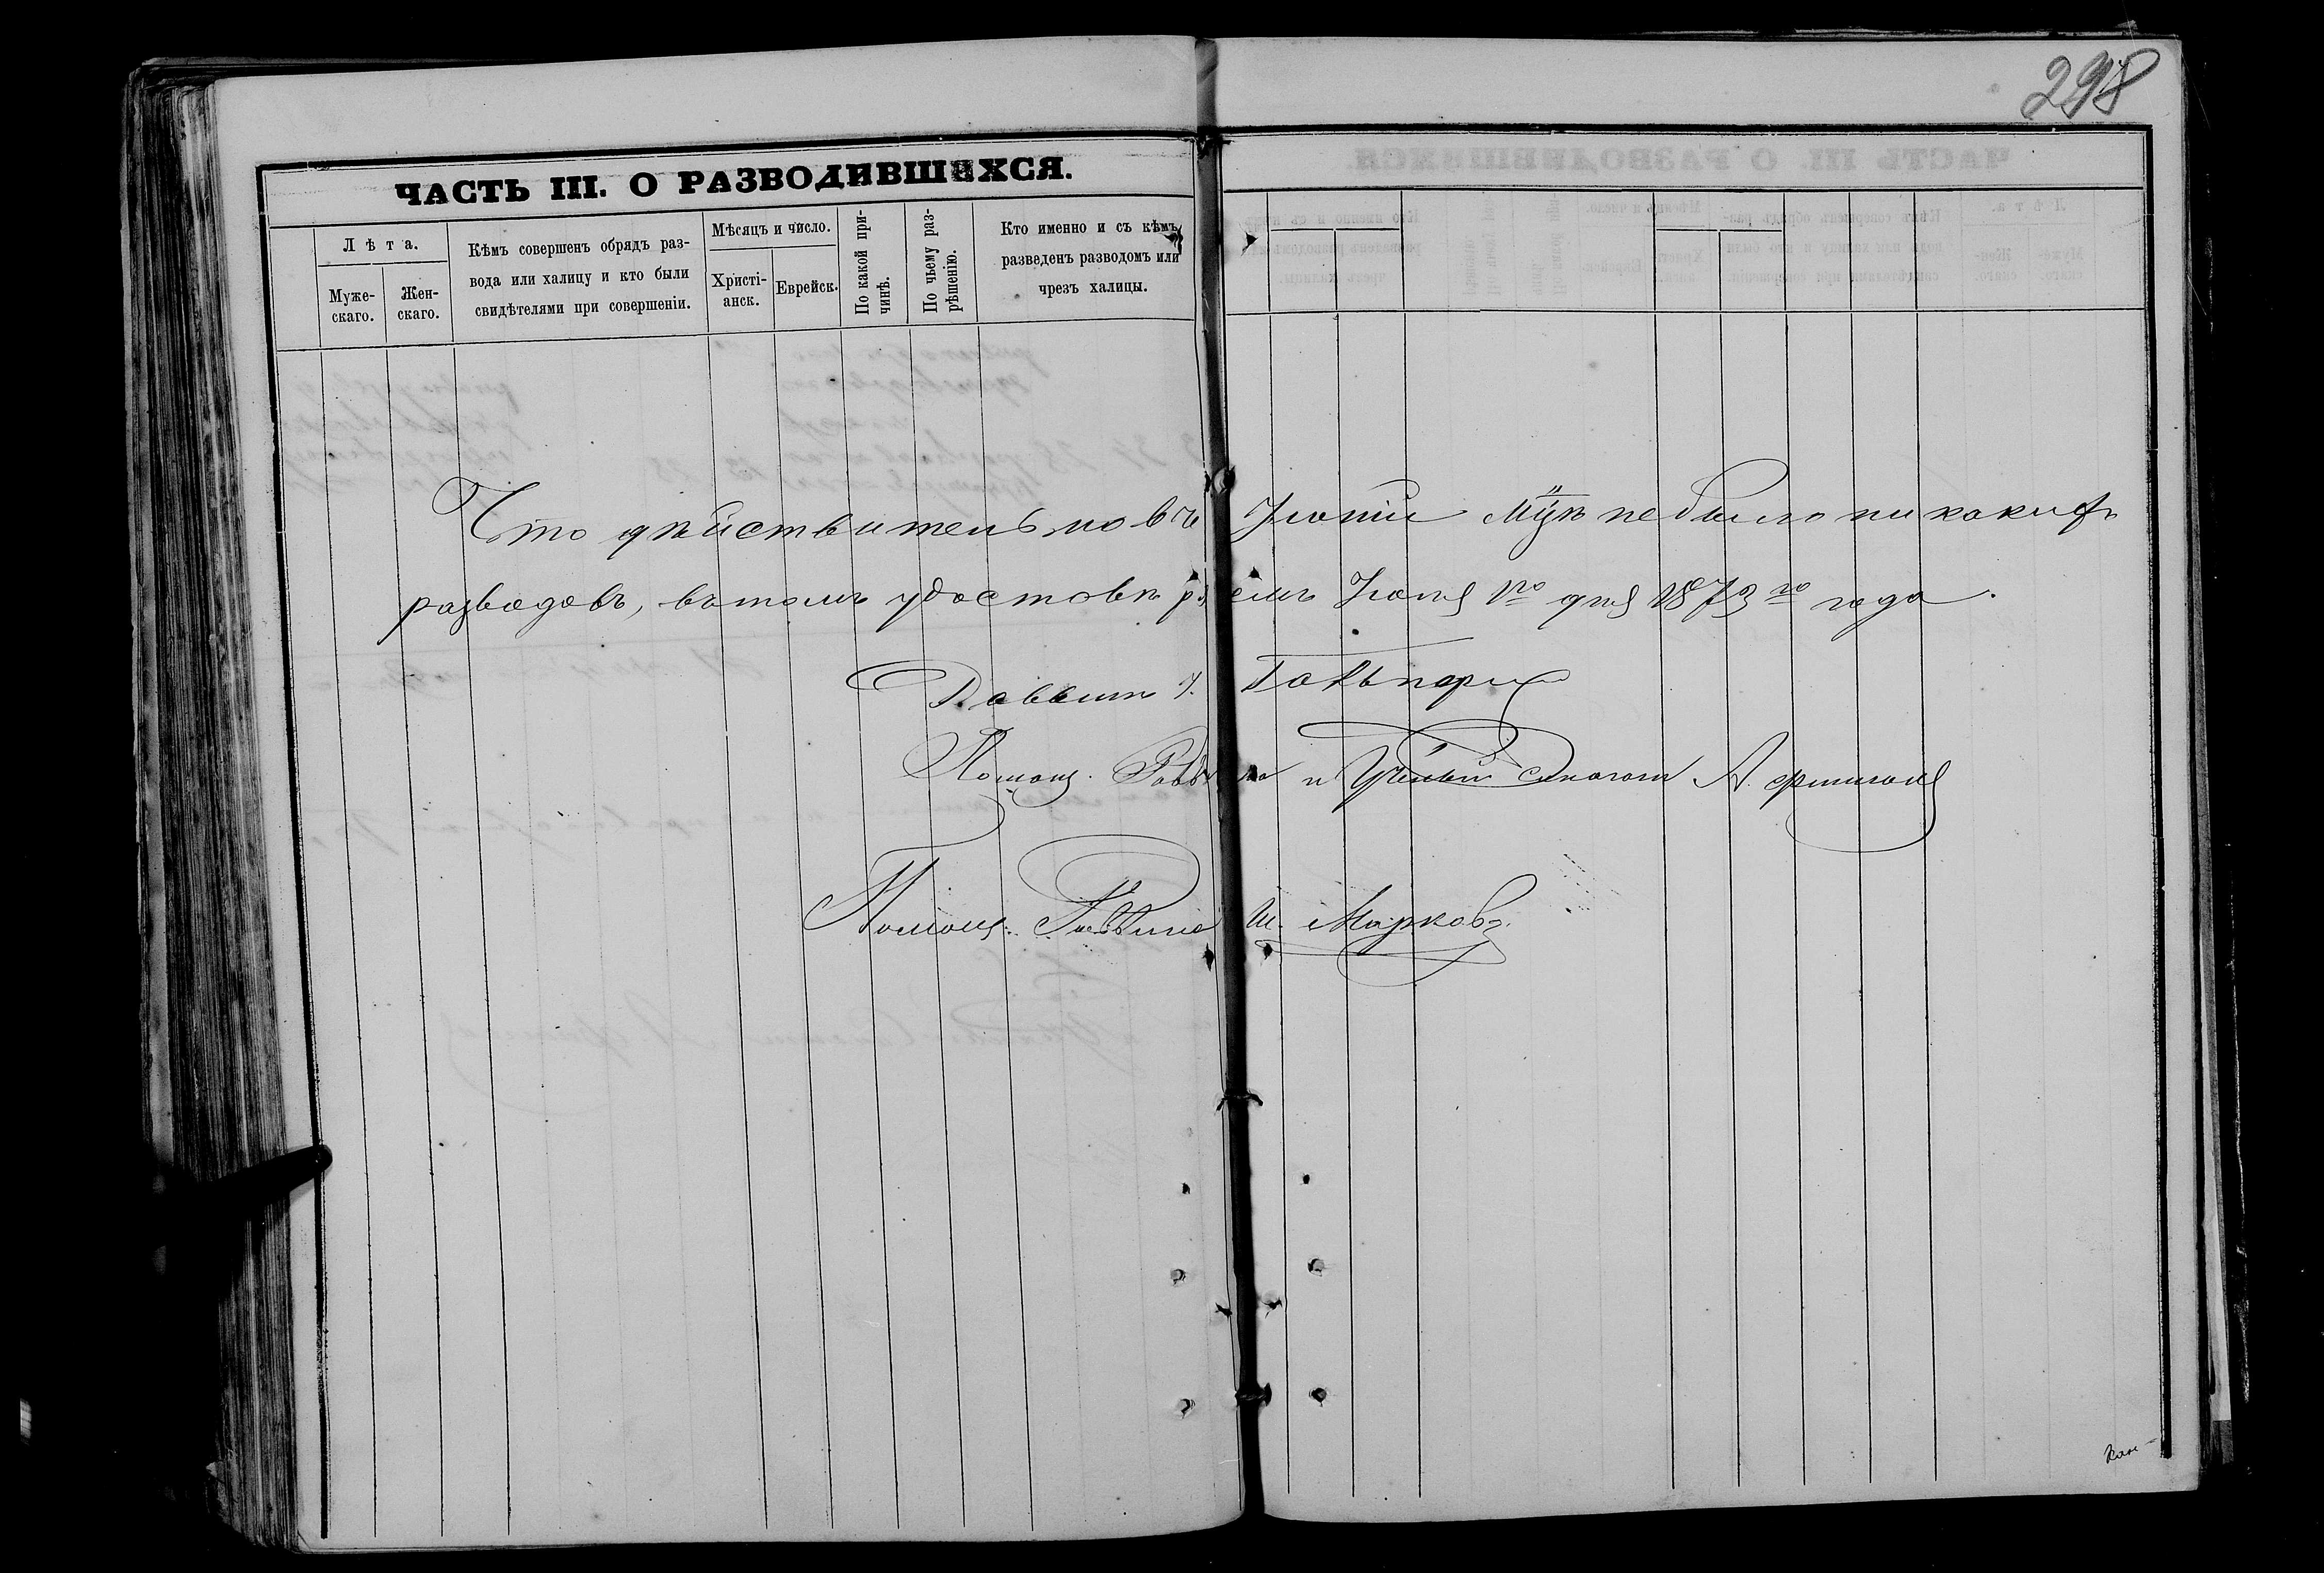 298
ЧАСТЬ III. О РАЗВОДИВШИХСЯ.
Лѣта.
Муже-
скаго.
Жен-
скаго.
Кѣмъ совершенъ обрядъ раз-
вода или халицу и кто были
свидѣтелями при совершеніи.
Мѣсяцъ и число.
Христі-
анск.
Еврейск.
По какой при-
чинѣ.
По чьему раз-
рѣшенію.
Кто именно и съ кѣмъ
разведенъ разводомъ или
чрезъ халицы.
Что дѣйствительно въ Іюнѣ М-цѣ не было никакихъ
разводовъ, въ томъ удостовѣряемъ Іюля 1го дня 1873го года.
Гальперн
Помощ. Раввина и Учёный
Помощ. Раввина Ш. Марковъ